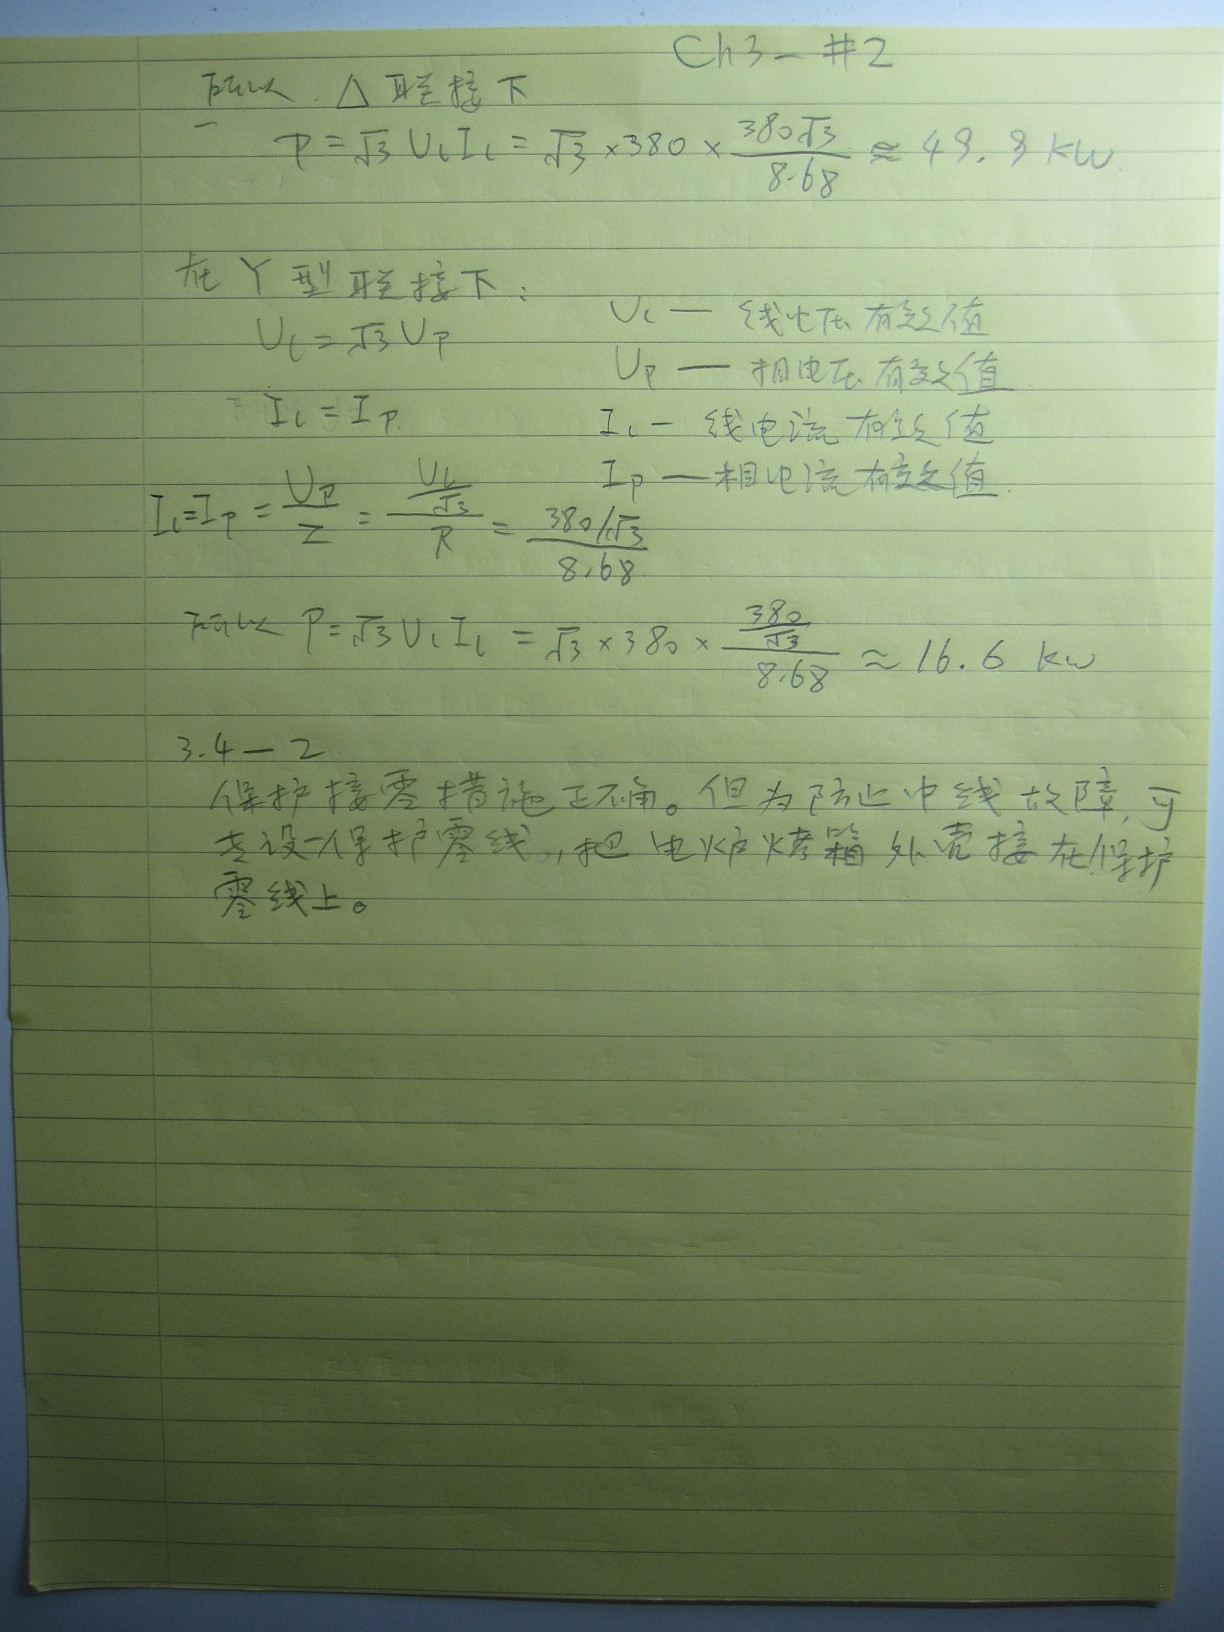 Ch3-#2
所以, △联接下
P=√3 U_L I_L = √3 ×380 × 380√3/8.68 ≈ 49.9 kW.
在Y型联接下:
U_L=√3 U_P
U_L — 线电压有效值
U_P — 相电压有效值
I_L = I_P.
I_L — 线电流有效值
I_P — 相电流有效值.
I_L=I_P = U_P/Z = (U_L/√3)/R = (380/√3)/8.68
所以 P=√3 U_L I_L = √3 ×380 × (380/√3)/8.68 ≈16.6 kw
3.4-2.
保护接零措施正确。但为防止中线故障,可
专设一保护零线,把电炉烤箱外壳接在保护
零线上。